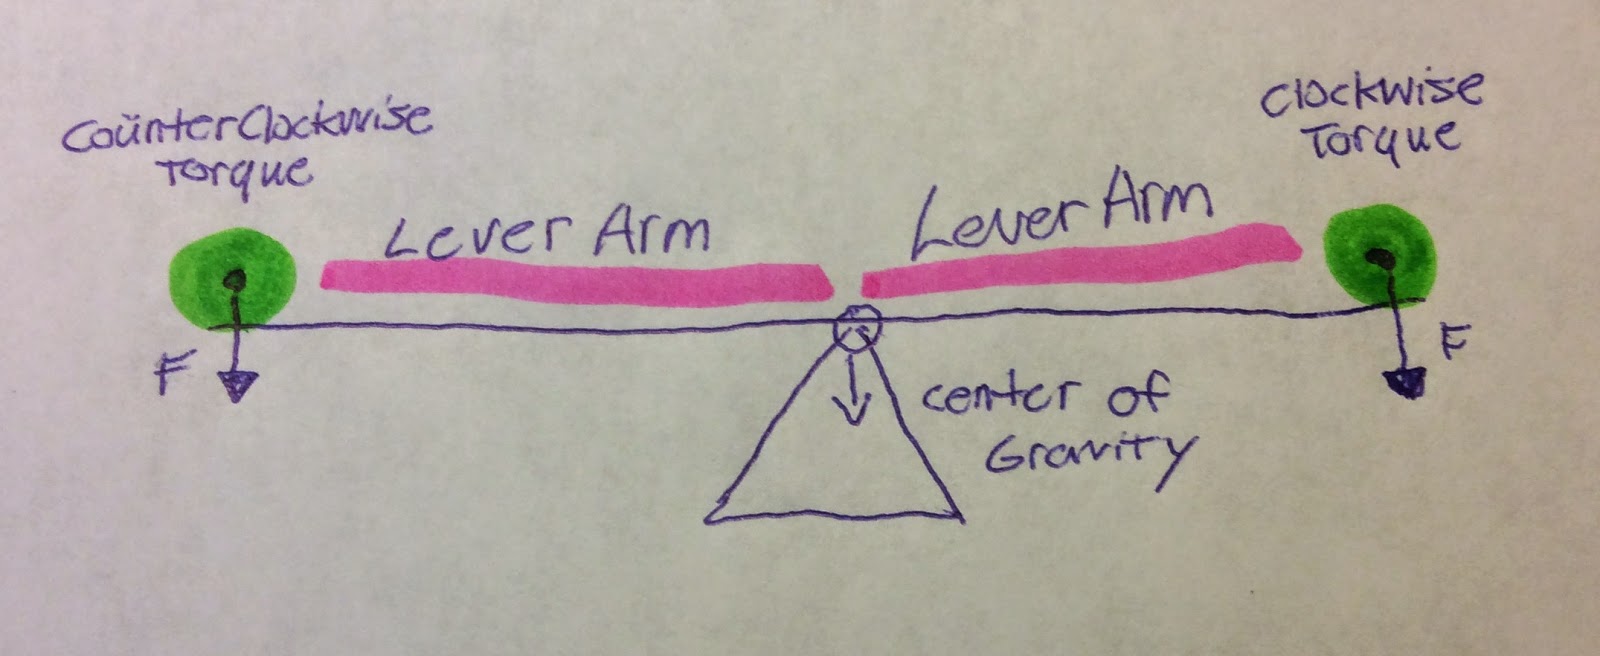 CounterClockwise
Torque
Clockwise
Torque
Lever Arm
Lever Arm
F
F
center of
Gravity